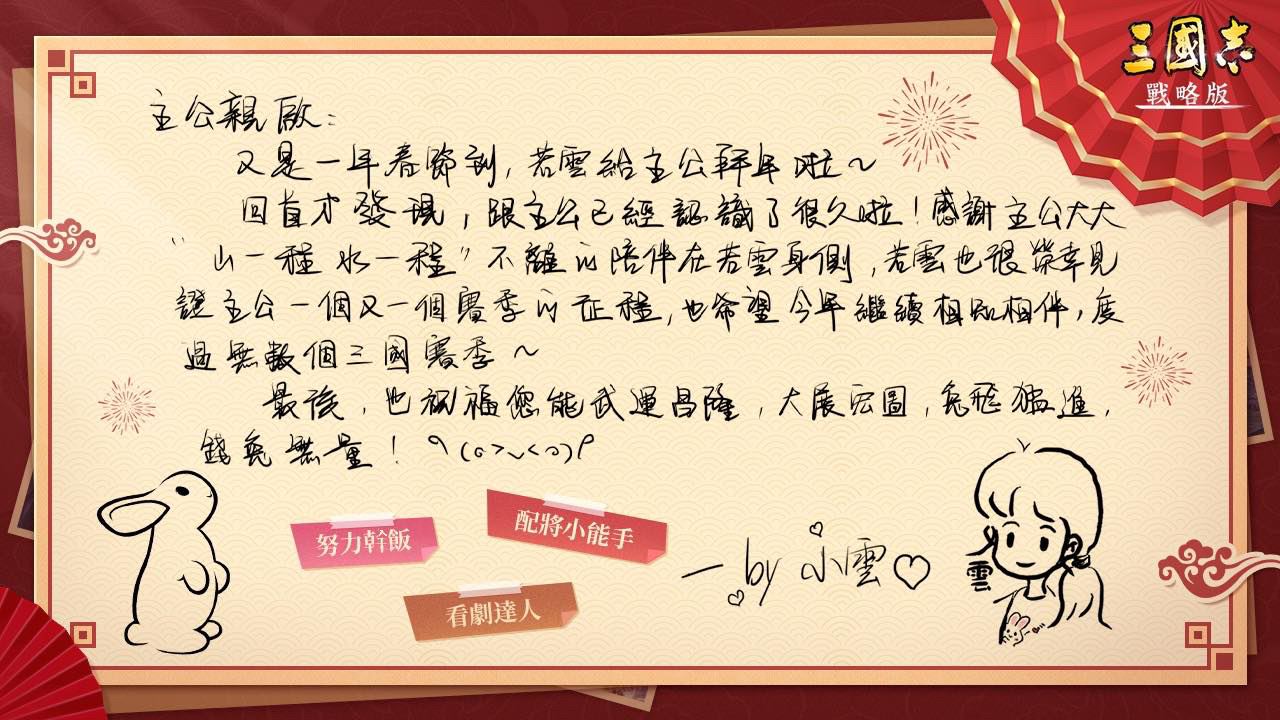 三國志
戰略版
主公親啟：
又是一年春節到，若雲給主公拜年啦～
回首才發現，跟主公已經認識了很久啦！感謝主公大大
“山一程 水一程”不離的陪伴在若雲身側，若雲也很榮幸見
證主公一個又一個賽季的征程，也希望今年繼續相知相伴，度
過無數個三國賽季～
最後，也祝福您能武運昌隆，大展宏圖，兔飛猛進，
錢兔無量！٩(o>ᴗ<o)۶
努力幹飯
配將小能手
看劇達人
— by 小雲♡
雲